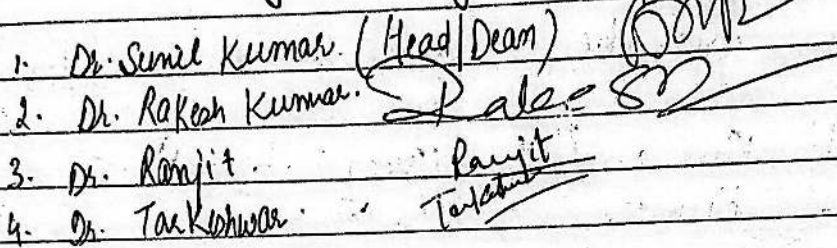 1. Dr. Sunil Kumar. (Head/Dean)
2. Dr. Rakesh Kumar.
3. Dr. Ranjit. Ranjit
4. Dr. Tarkeshwar.